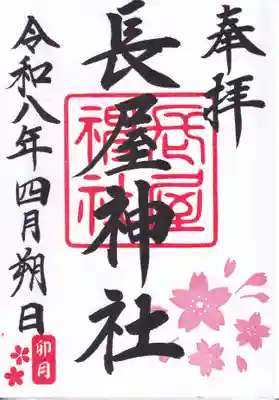 奉拝
長屋神社
長屋神社
令和八年四月朔日
卯月